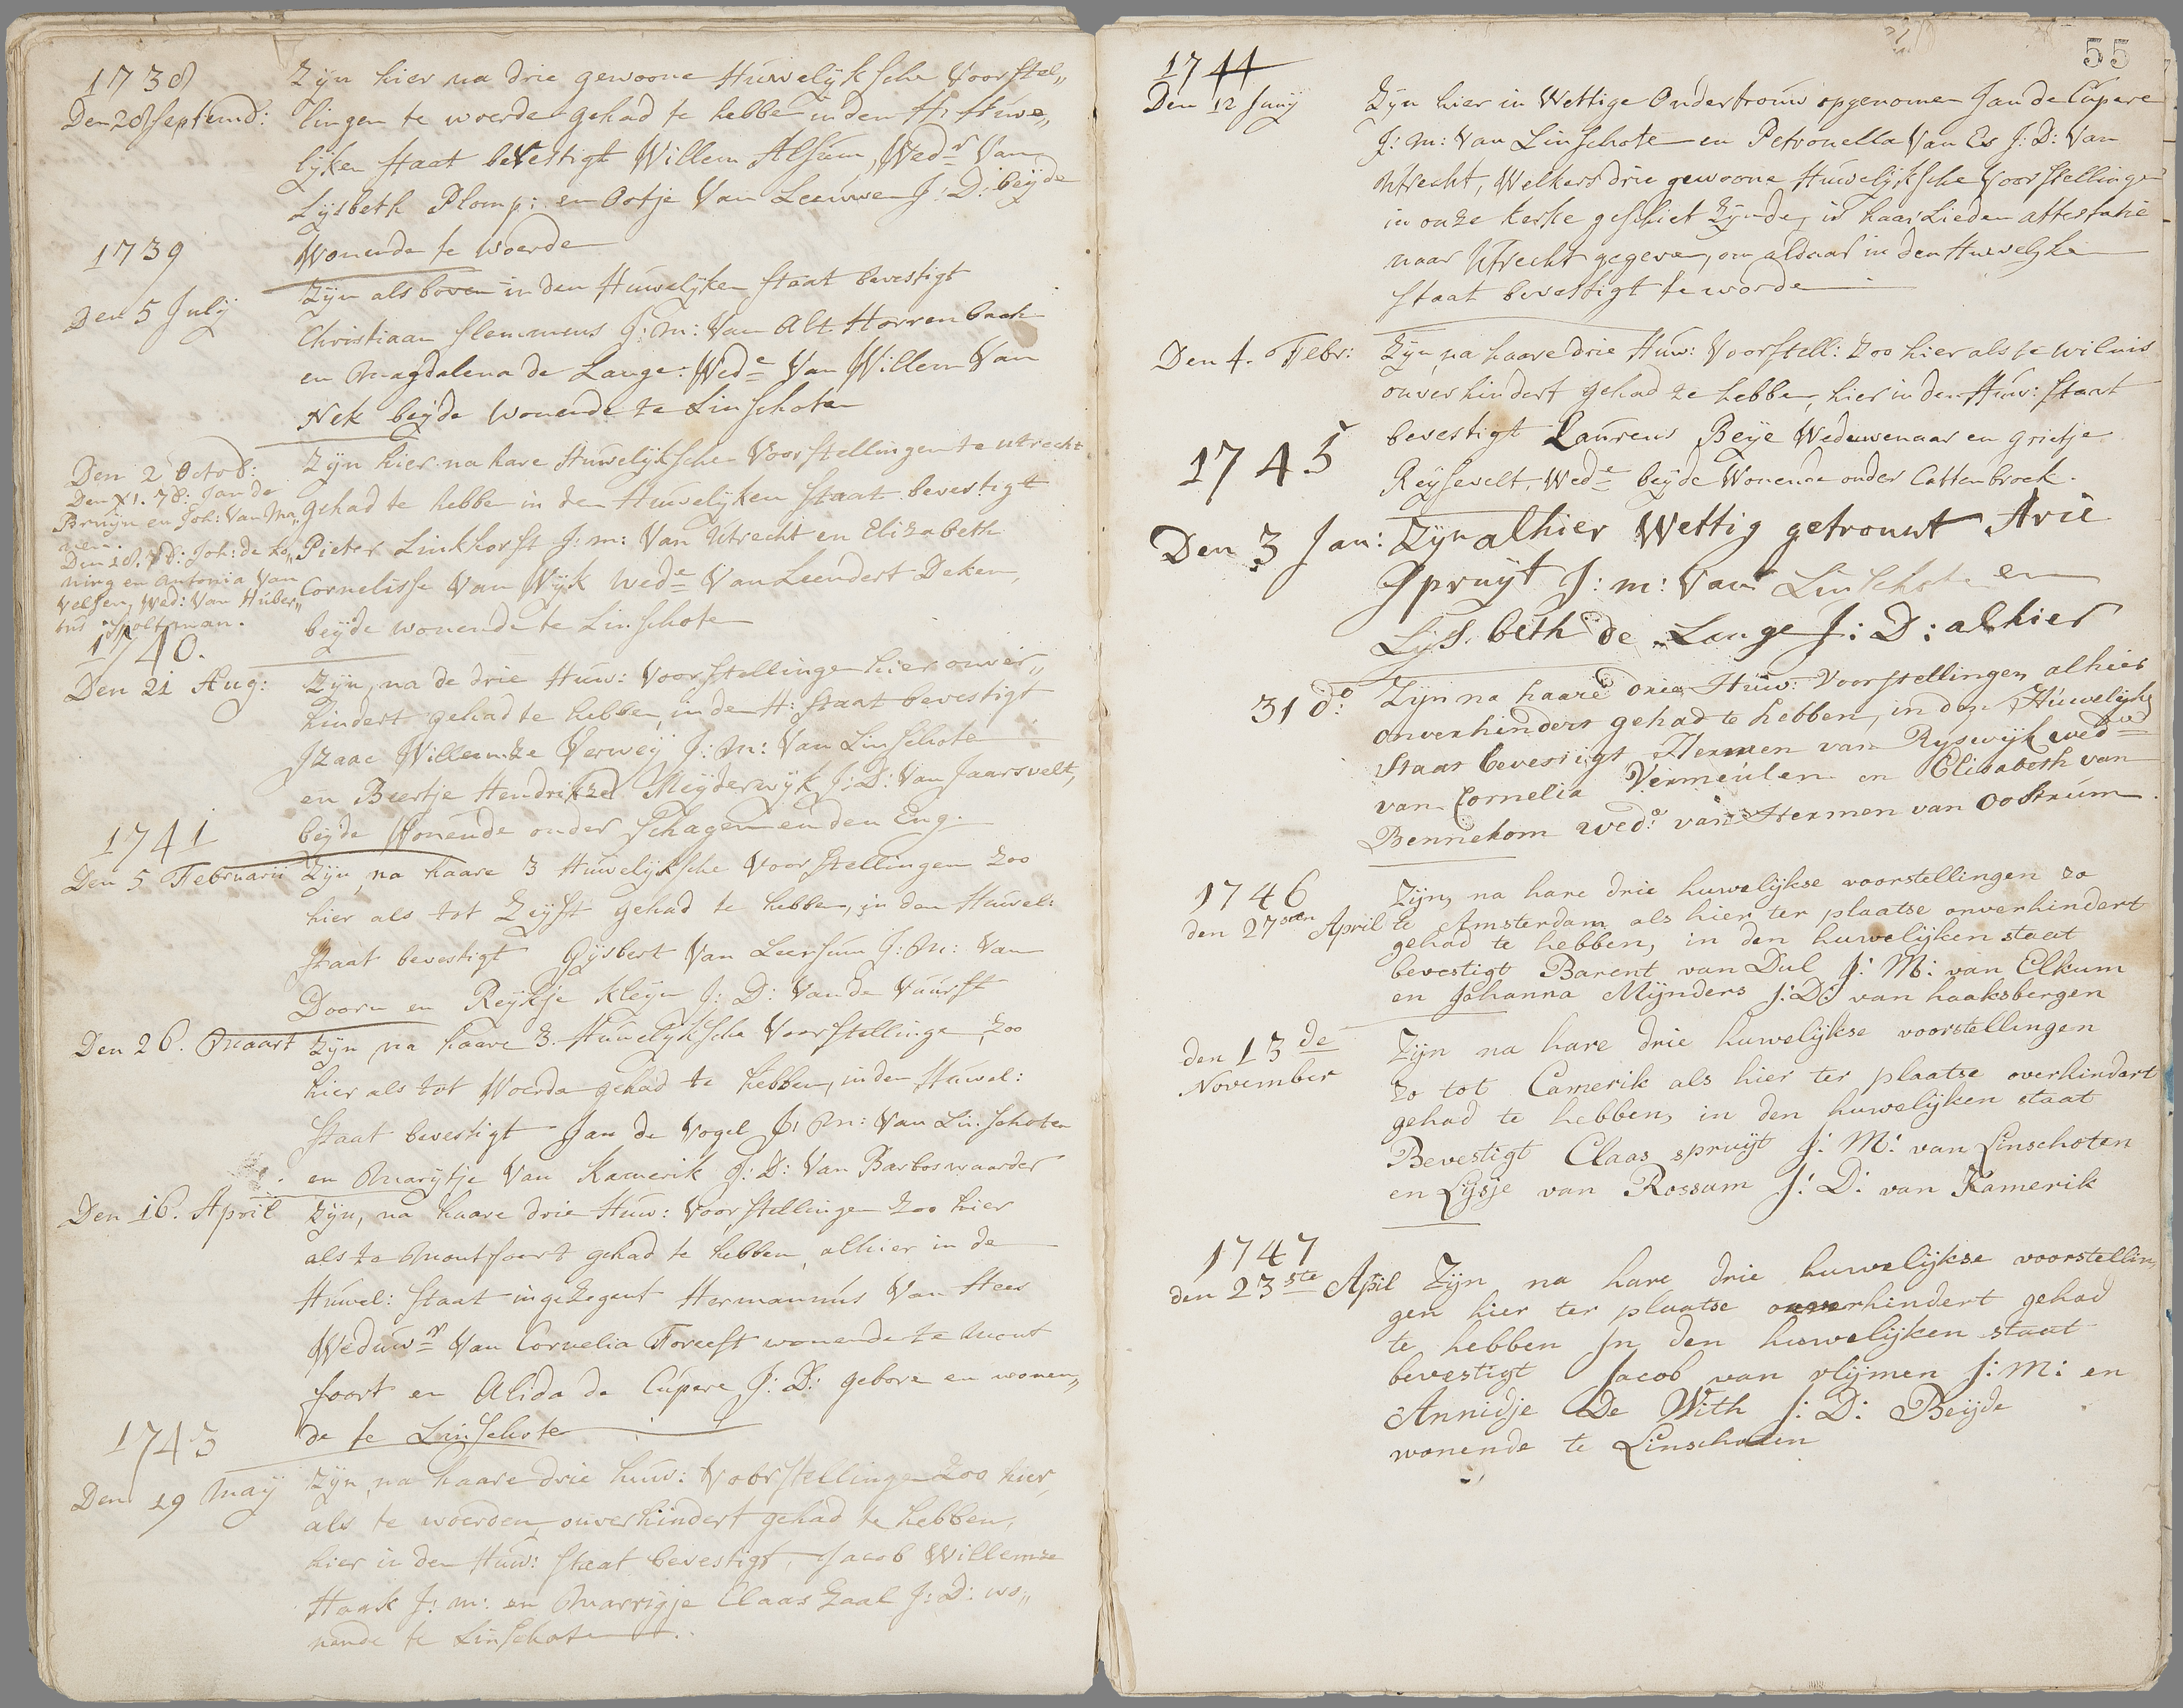 1738
Den 28 Septemb:
Zijn hier na drie gewoone Huwelijksche Voorstel„
lingen te woerde gehad te hebbe in den H: Huwe„
lijken staat bevestigt Willem Alsum, Wedr Van
Lijsbeth Plomp; en Ootje Van Leeuwen J: D: beijde
Wonende te woerde
1739
Den 5 Julij
Zijn als boven in den Huwelijken staat bevestigt
Christiaan Slemmens J: m: Van Alt. Horrenbach
en Magdalena de Lange: Wede Van Willem Van
Nek beijde wonende te Linschoten
Den 2 Octob:
Zijn hier na hare Huwelijksche Voorstellingen te utrecht
gehad te hebben in den Huwelijken staat bevestigt
Pieter Linkhorst J: m: Van Utrecht en Elizabeth
Cornelisse Van Wijk Wede Van Leendert Deken,
beijde wonende te Linschote
Jan de
Bruijn en Joh: Van Ma„
Joh: de Ko„
ning en Antonia Van
Velsen, Wed: Van Huber„
tus Holtman.
1740.
Den 21 Aug:
Zijn, na de drie Huw: Voorstellinge hier onver„
hindert gehad te hebben, in den H: Staat bevestigt
Izaac Willemze Verweij J: M: Van Linschote
en Beertje Hendrikze Meijderwijk J: D: Van Jaarsvelt,
beijde Wonende onder Schagen en den Eng.
1741
Den 5 Februarii
Zijn, na haare 3 Huwelijksche Voorstellingen zoo
hier als tot Zeijst gehad te hebben, in den Huwel:
staat bevestigt Gijsbert Van Leersum J: M: Van
Doorn en Reijkje Kleijn J: D: Van de Vuurst
Den 26. Maart
Zijn, na haare 3. Huwelijksche Voorstellinge, zoo
hier als tot Woerde gehad te hebben, in den Huwel:
Staat bevestigt Jan de Vogel J: M: Van Linschoten
en Marijtje Van Kamerik J: D: Van Barboswaarder
Den 16. April
Zijn, na haare drie Huw: Voorstellingen zoo hier
als te Montfoort gehad te hebben, alhier in de
Huwel: staat ingezegent Hermannus Van Hees
Weduwr Van Cornelia Foreest wonende te Mont
foort en Alida de Cupere J: D: gebore en wonen„
de te Linschote
1743
Den 19 May
Zijn, na haare drie huw: Voorstellinge zoo hier,
als te woerden, onverhindert gehad te hebben,
hier in den Huw: staat bevestigt, Jacob Willemze
Haak J: m: en Marrigje Claas Zaal J: D: wo„
nende te Linschote
55
1744
Den 12 Junij
Zijn hier in Wettige Ondertrouw opgenomen Jan de Cupere
J: m: Van Linschote en Petronella Van Es J: D: Van
Utrecht, Welkers drie gewoone Huwelijksche Voorstellingen
in onze Kerke geschiet Zijnde, is haarlieden attestatie
naar Utrecht gegeven, om aldaar in den Huwelijke
staat bevestigt te worde
Den 4. Febr:
Zijn, na haare drie Huw: Voorstell: zoo hier als te wilnis
onverhindert gehad te hebben, hier in den Huw: staat
bevestigt Laurens Beije Weduwenaar en Grietje
Reijsevelt, Wede beijde Wonende onder Cattenbroek.
1745
Den 3 Jan:
Zijn alhier Wettig getrouwt Arie
Spruijt J: m: Van Linschote en
Lijsbeth de Lange J: D: alhier
31 do:
Zijn na haare drie Huw: Voorstellingen alhier
onverhindert gehad te hebben, in den Huwelijke
Staat bevestigt Hermen van Ryswijk wedr
van Cornelia Vermeulen en Elisabeth van
Bennekom wede: van Hermen van Oostrum.
1746
den 27sten April
Zijn, na hare drie huwelijkse voorstellingen zo
te Amsterdam, als hier ter plaatse onverhindert
gehad te hebben, in den huwelijken staat
bevestigt Barent van Dul J: M: van Elkum
en Johanna Mijnders J: D: van haaksbergen
den 13de
November
Zijn na hare drie huwelijkse voorstellingen
zo tot Camerik als hier ter plaatse overhindert
gehad te hebben, in den huwelijken staat
Bevestigt Claas spruijt J: M: van Linschoten
en Lijsje van Rossum J: D: van Kamerik
1747
den 23ste April
Zijn na hare drie huwelijkse voorstellin„
gen hier ter plaatse onverhindert gehad
te hebben In den huwelijken staat
bevestigt Jacob van vlijmen J: M: en
Annidje De With J: D: Beijde
wonende te Linschoten